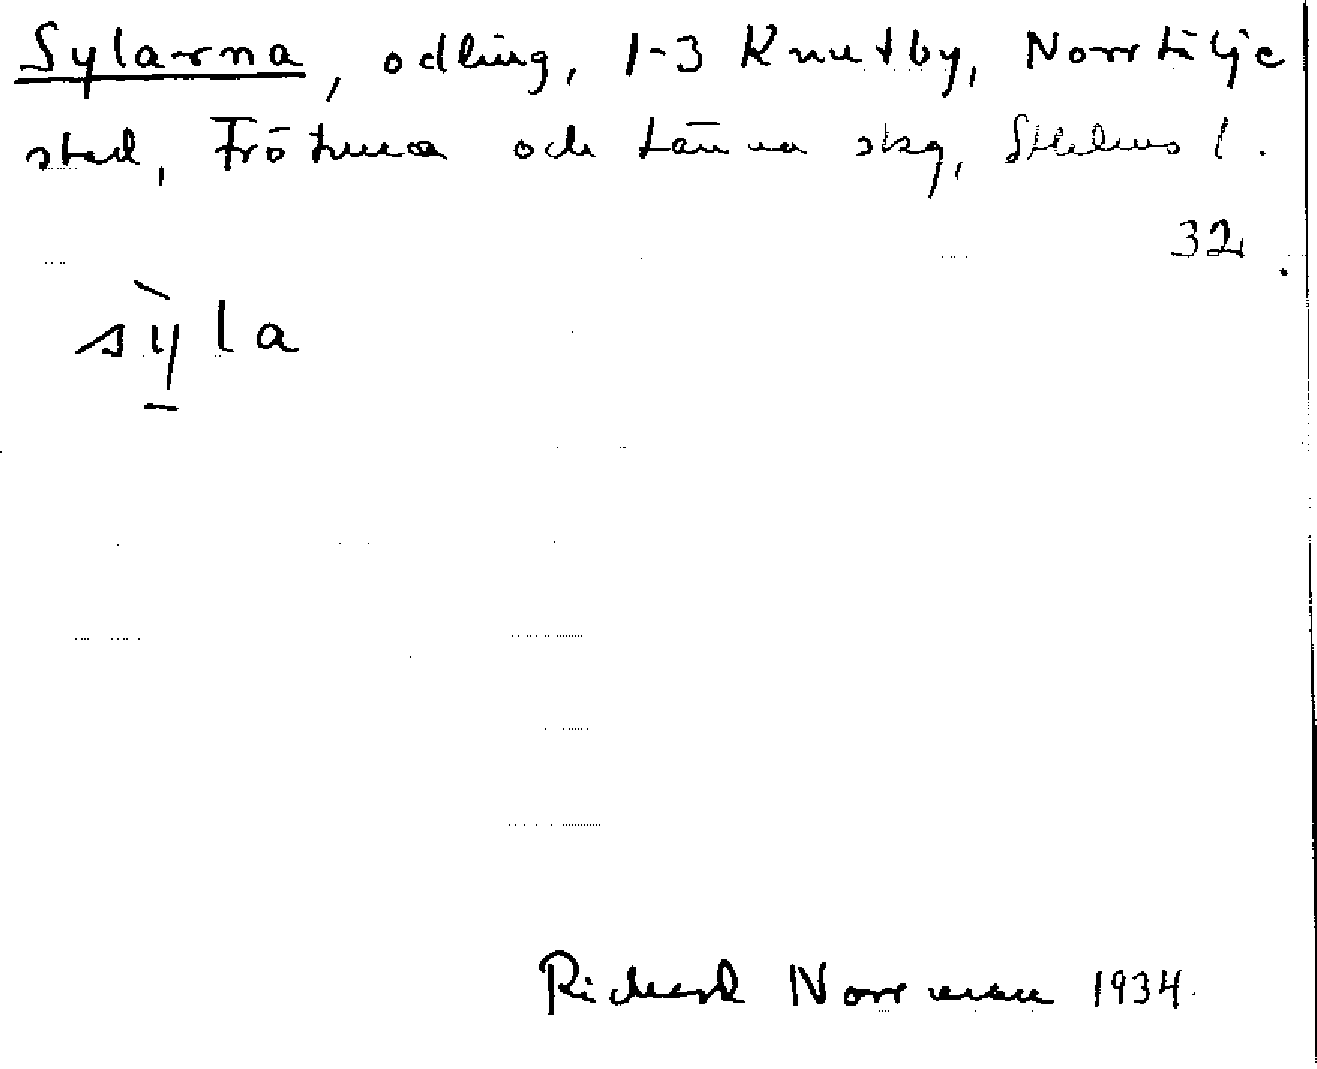 Sylarna, odling, 1-3 Knutby, Norrtälje
stad, Frötuna och Länna skg, Sthlms l.
32.
sỳla
Richard Norrman 1934.